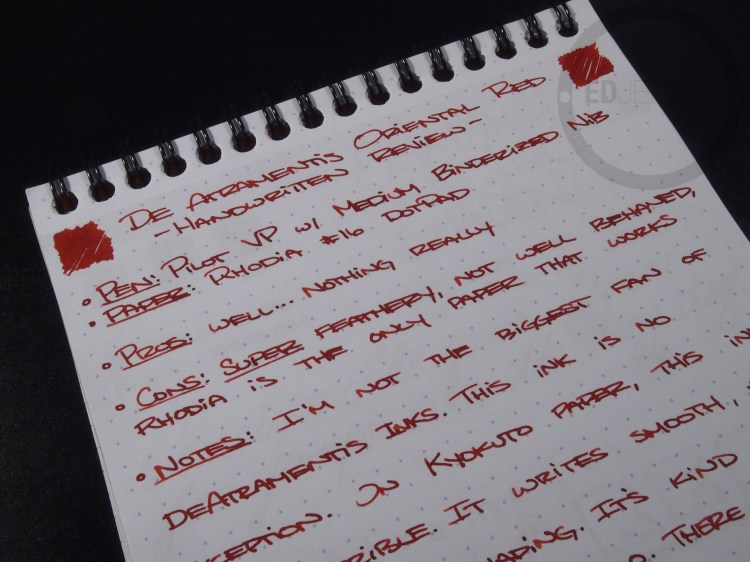 De Atramentis Oriental Red
-Handwritten Review-
• Pen: Pilot VP w/ Medium Binderized Nib
• Paper: Rhodia #16 DotPad
• Pros: Well... nothing really
• Cons: Super feathery, not well behaved,
Rhodia is the only paper that works
• Notes: I'm not the biggest fan of
DeAtramentis inks. This ink is no
On Kyokuto paper, this
It writes smooth,
It's kind
There